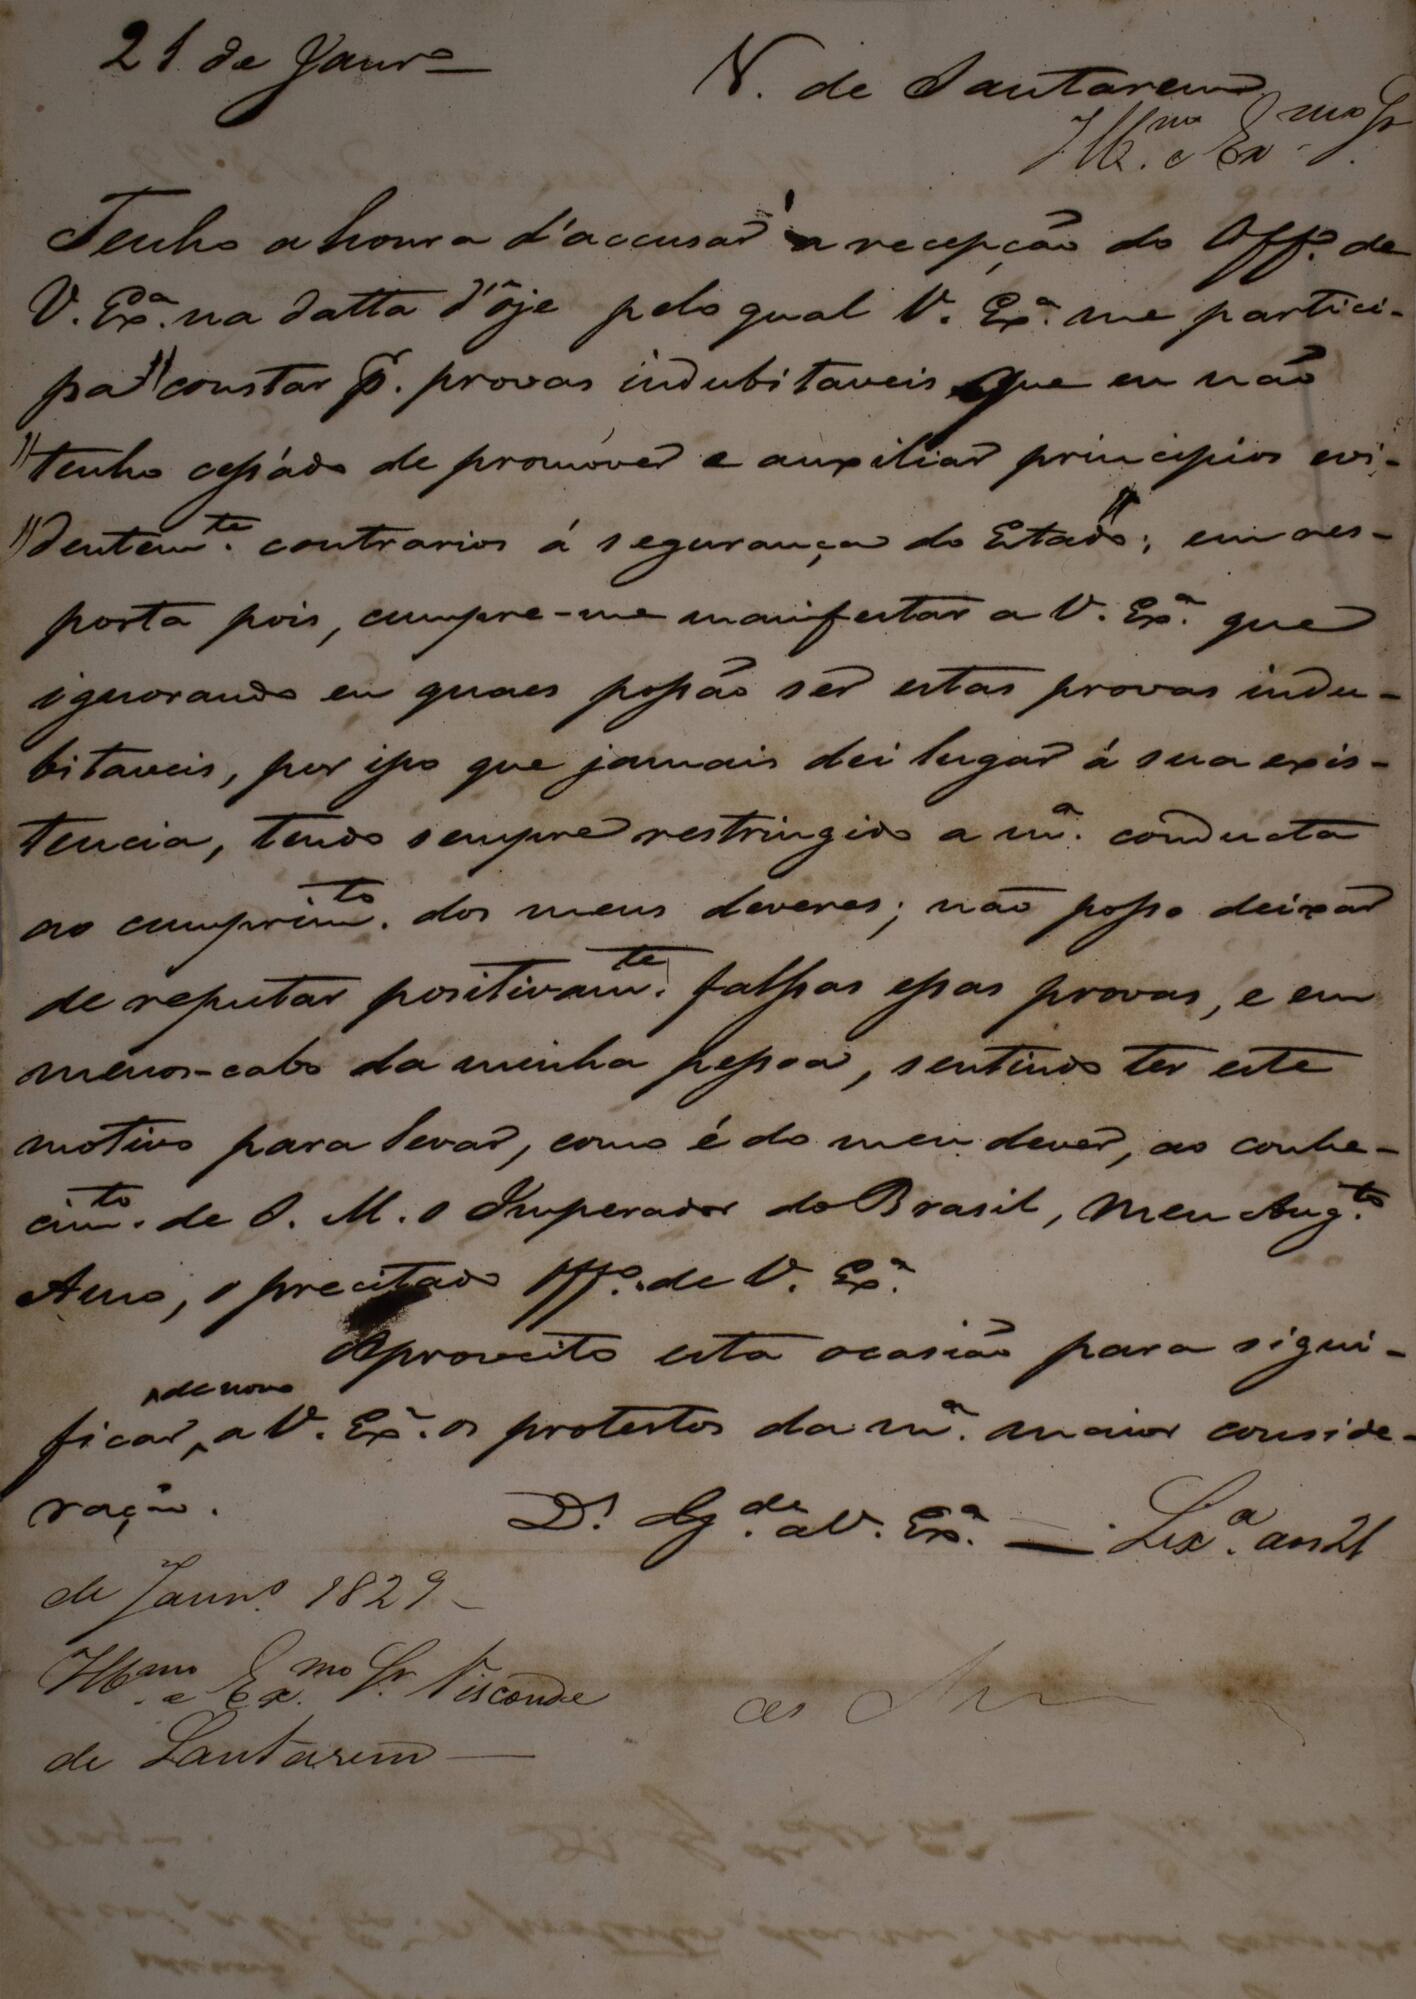 21 de Janr.º
V. de Santarem
Ill.mo e Ex.mo Sr.
Tenho a honra d'accusar a recepção do Off.º de
V. Ex.ª na datta d'ôje pelo qual V. Ex.ª me partici-
pa "constar p.r provas indubitaveis que eu não
"tenho cessádo de promover e auxiliar principios evi-
"dentem.te contrarios á segurança do Estado"; em res-
posta pois, cumpre-me manifestar a V. Ex.ª que
ignorando eu quaes possão ser estas provas indu-
bitaveis, por isso que jamais dei lugar á sua exis-
tencia, tendo sempre restringido a m.ª conducta
ao cumprim.to dos meus deveres; não posso deixar
de reputar positivam.te falsas essas provas, e em
menos-cabo da minha pessoa, sentindo ter este
motivo para levar, como é do meu dever, ao conhe-
cim.to de S. M. o Imperador do Brasil, Meu Aug.to
Amo, o precitado Off.º de V. Ex.ª
Aproveito esta ocasião para signi-
ficar, de novo a V. Ex.ª os protestos da m.ª maior conside-
ração.
D.s G.de a V. Ex.ª — Lix.ª aos 21
de Janr.º 1829 —
Ill.mo e Ex.mo Sr. Visconde
de Santarem —
as